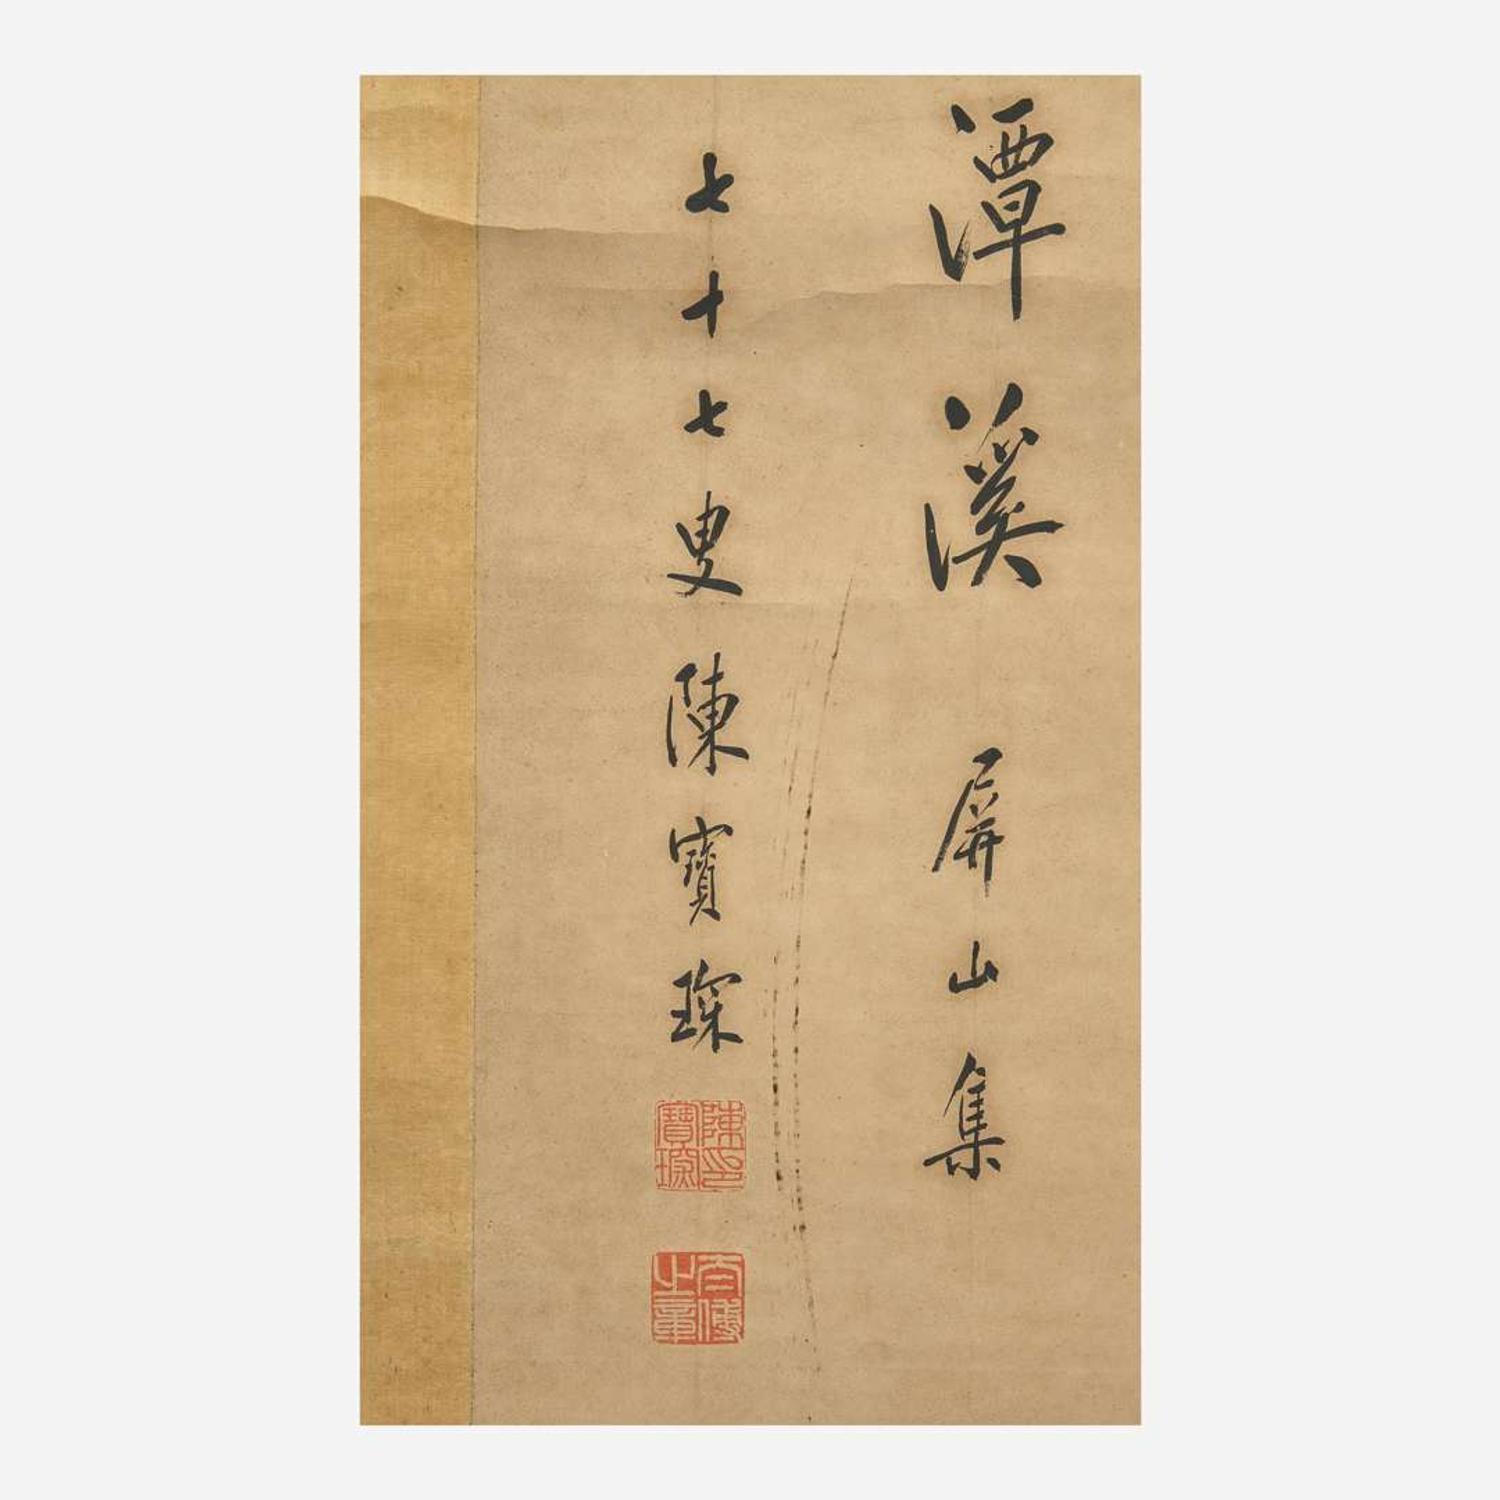 潭溪 屏山集
七十七叟陳寶琛
陳印寶琛
太傅之章